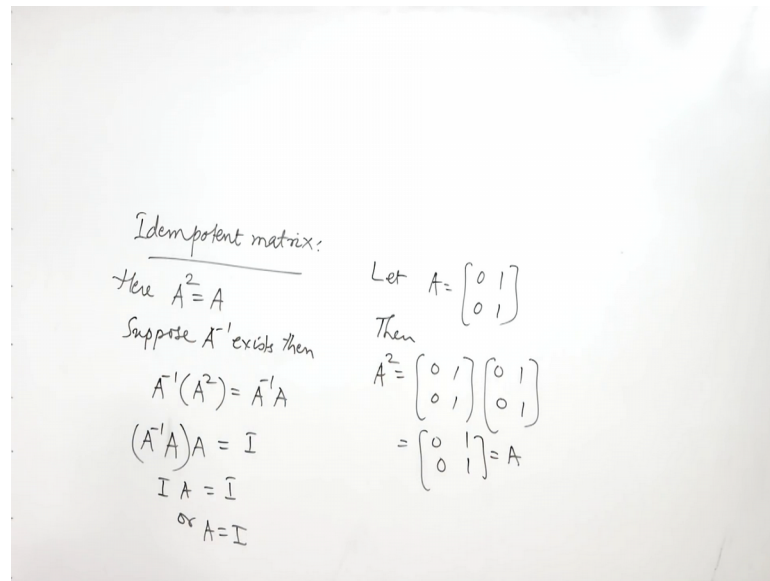 Idempotent matrix:
Here A² = A
Suppose A⁻¹ exists then
A⁻¹(A²) = A⁻¹A
(A⁻¹A)A = I
I A = I
or A = I
Let A = [0 1
0 1]
Then
A² = [0 1 [0 1
0 1] 0 1]
= [0 1
0 1] = A